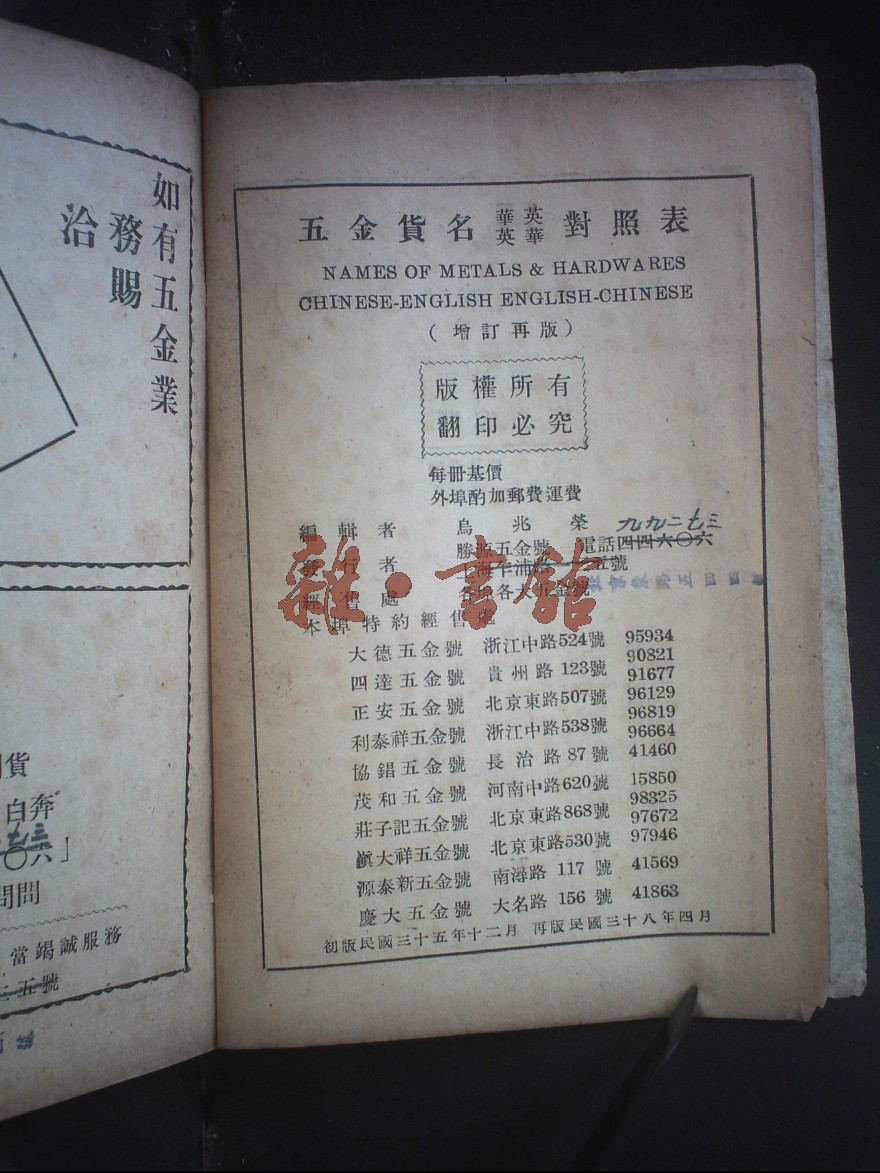 如有五金業
務賜
洽
貨
白奔
六」
問問
當竭誠服務
五號
五金貨名華英英華對照表
NAMES OF METALS & HARDWARES
CHINESE-ENGLISH ENGLISH-CHINESE
(增訂再版)
版權所有
翻印必究
每冊基價
外埠酌加郵費運費
編輯者 烏兆榮 九九二七三
勝源五金號 電話四四六〇六
發行者 上海乍浦路一五號
經售處 各埠各大五金號
本埠特約經售處
大德五金號 浙江中路524號 95934
90821
四達五金號 貴州路123號 91677
正安五金號 北京東路507號 96129
96819
利泰祥五金號 浙江中路538號 96664
協錩五金號 長治路87號 41460
茂和五金號 河南中路620號 15850
98325
莊子記五金號 北京東路868號 97672
愼大祥五金號 北京東路530號 97946
源泰新五金號 南潯路117號 41569
慶大五金號 大名路156號 41863
初版民國三十五年十二月 再版民國三十八年四月
雜·書館